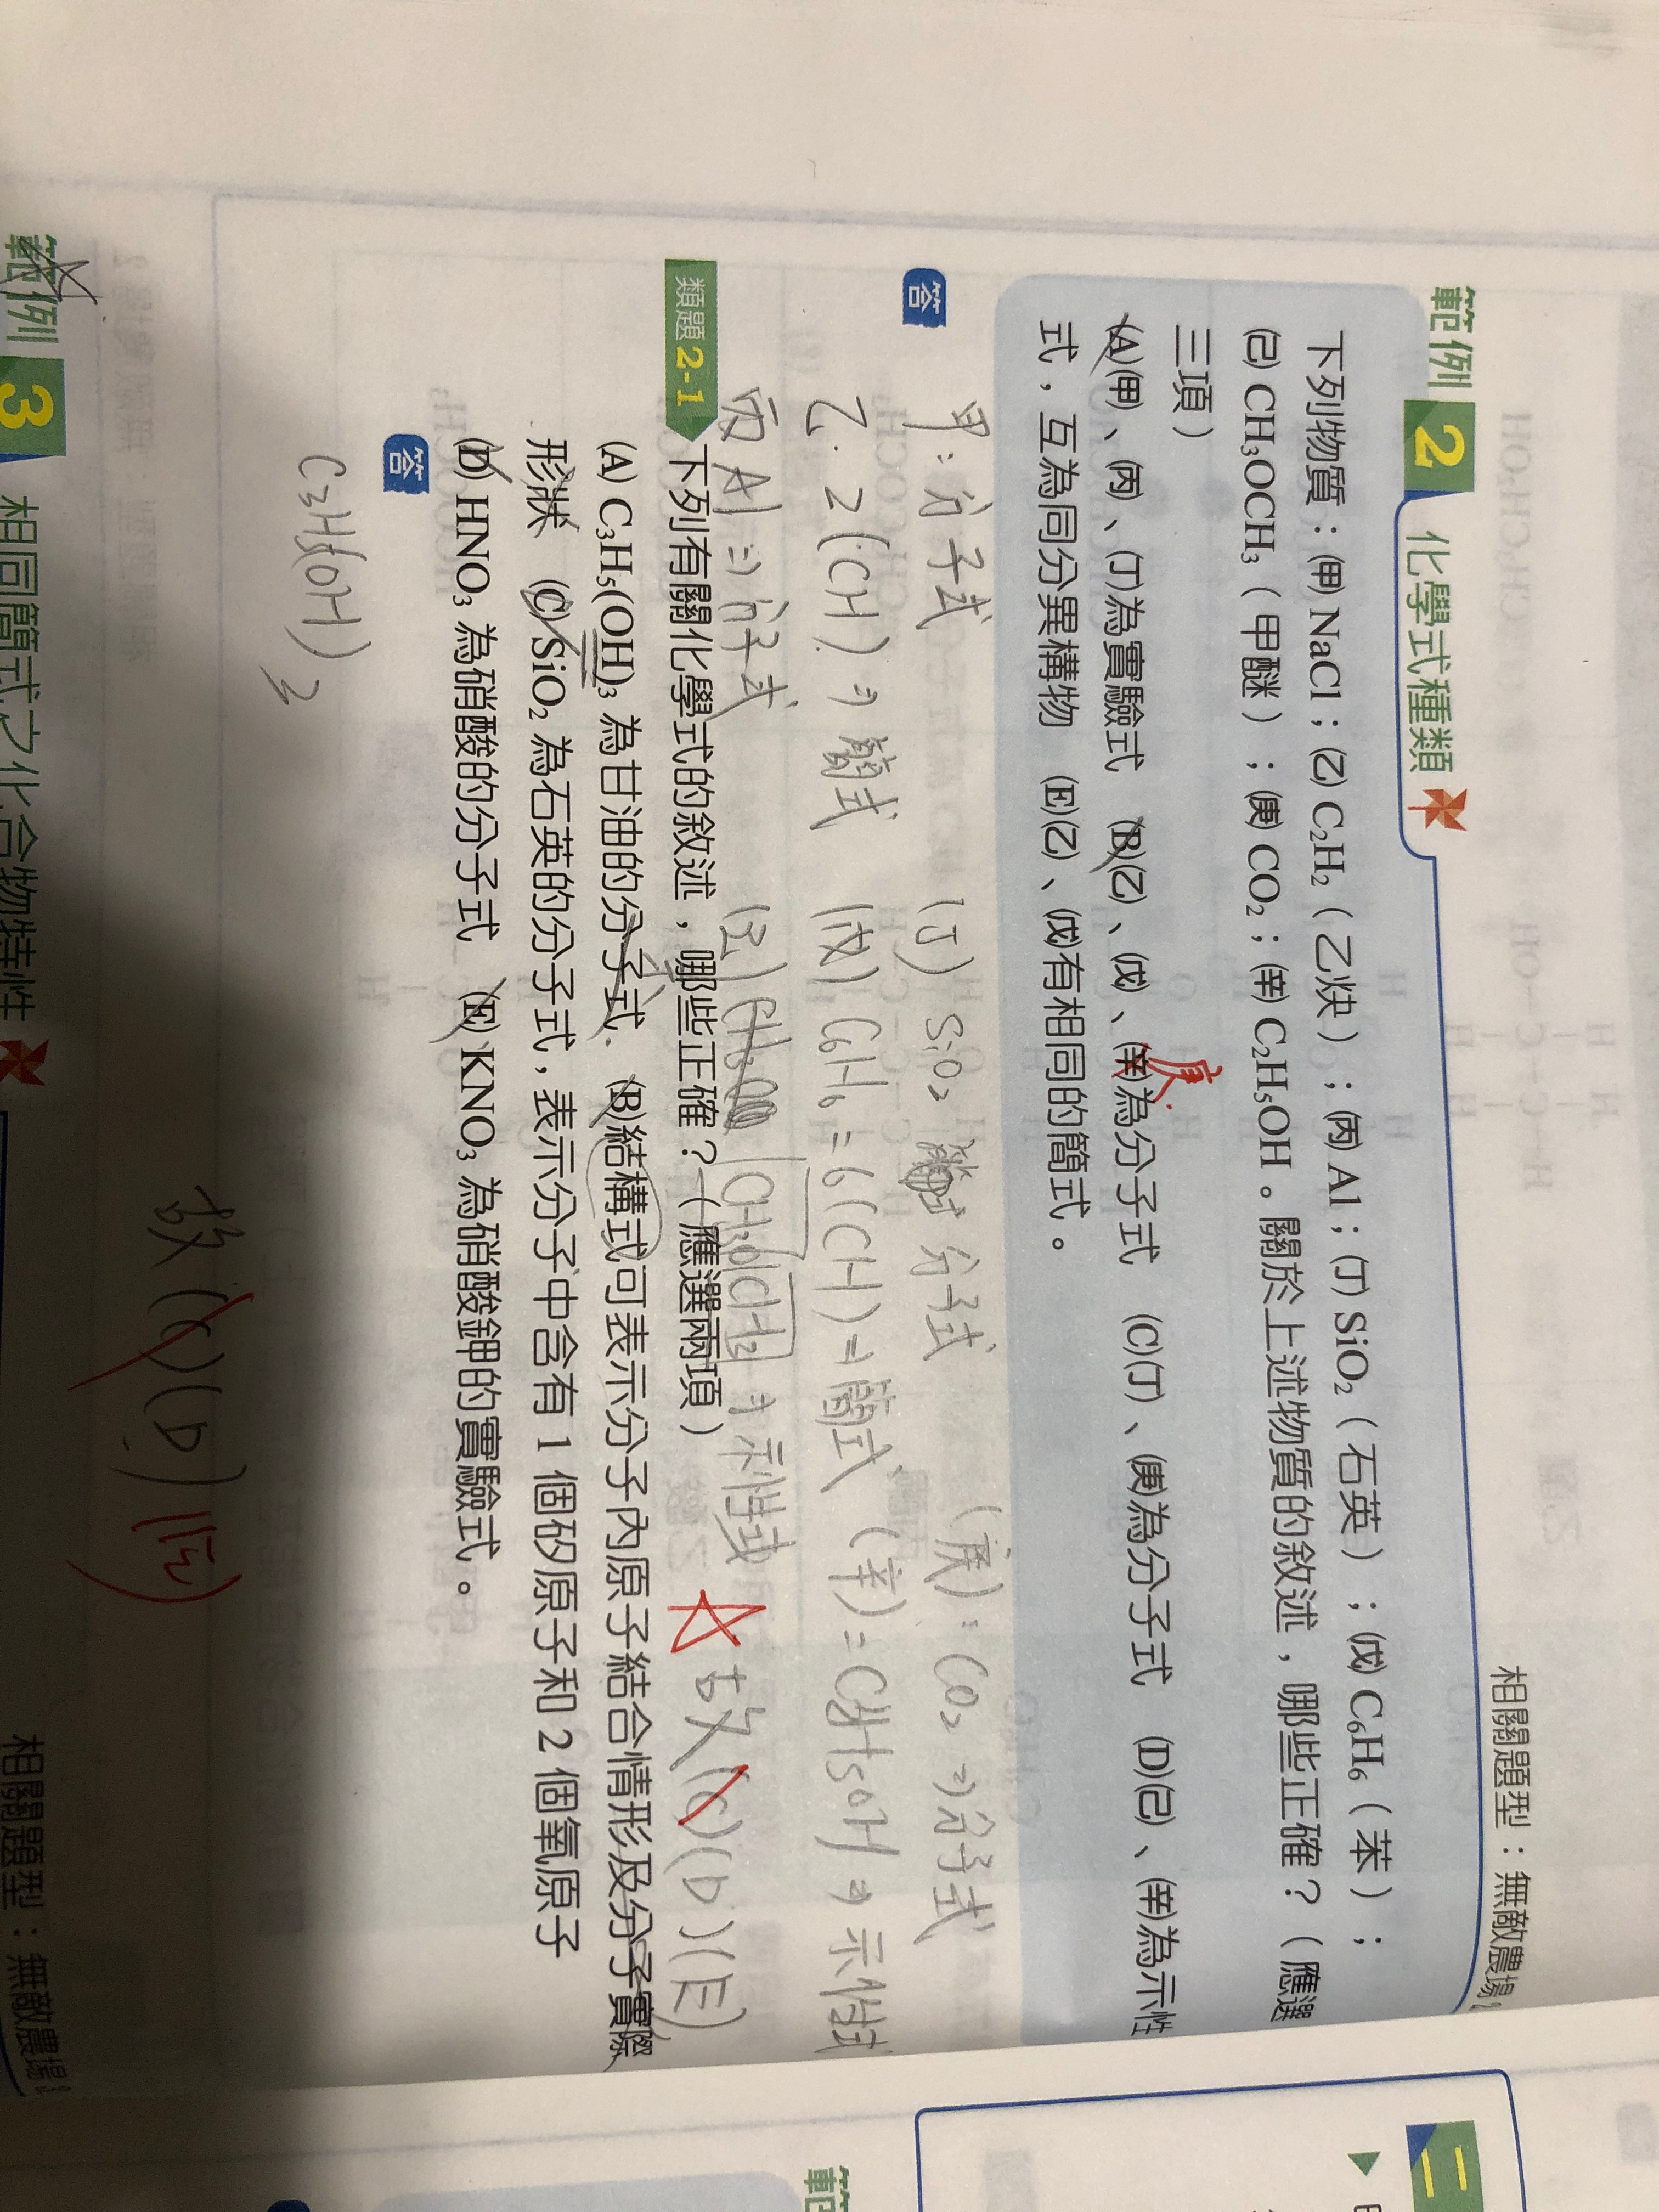 相關題型：無敵農場
範例 2 化學式種類
下列物質：(甲) NaCl；(乙) C₂H₂（乙炔）；(丙) Al；(丁) SiO₂（石英）；(戊) C₆H₆（苯）；
(己) CH₃OCH₃（甲醚）；(庚) CO₂；(辛) C₂H₅OH。關於上述物質的敘述，哪些正確？（應選
三項）
庚
(A)(甲)、(丙)、(丁)為實驗式 (B)(乙)、(戊)、(辛)為分子式 (C)(丁)、(庚)為分子式 (D)(己)、(辛)為示性
式，互為同分異構物 (E)(乙)、(戊)有相同的簡式。
答
甲：分子式 (丁) SiO₂ 分子式 (庚)：CO₂ ⇒ 分子式
乙. 2(CH) ⇒ 簡式 (戊) C₆H₆ = 6(CH) ⇒ 簡式 (辛) = C₂H₅OH ⇒ 示性式
丙 Al ⇒ 分子式 (己) CH₃OCH₃ ⇒ 示性式 故(C)(D)(E)
類題 2-1 下列有關化學式的敘述，哪些正確？（應選兩項）
(A) C₃H₅(OH)₃ 為甘油的分子式 (B)結構式可表示分子內原子結合情形及分子實際
形狀 (C) SiO₂ 為石英的分子式，表示分子中含有 1 個矽原子和 2 個氧原子
(D) HNO₃ 為硝酸的分子式 (E) KNO₃ 為硝酸鉀的實驗式。
答
C₃H₅(OH)₃
故(C)(D)(E)
範例 3 相同簡式之化合物特性
相關題型：無敵農場
二
範